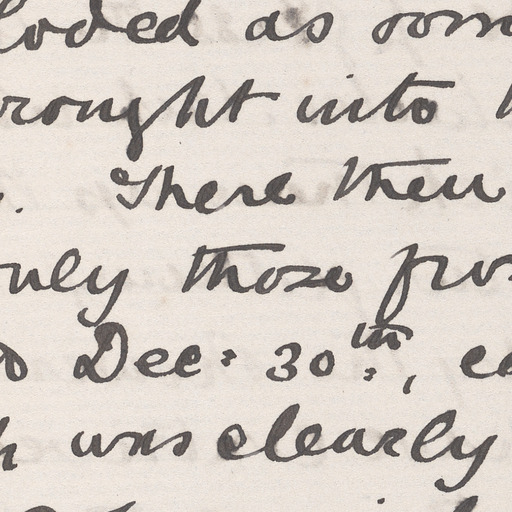 loded as som
rought into
. There then
only those fro
Dec: 30th,
was clearly